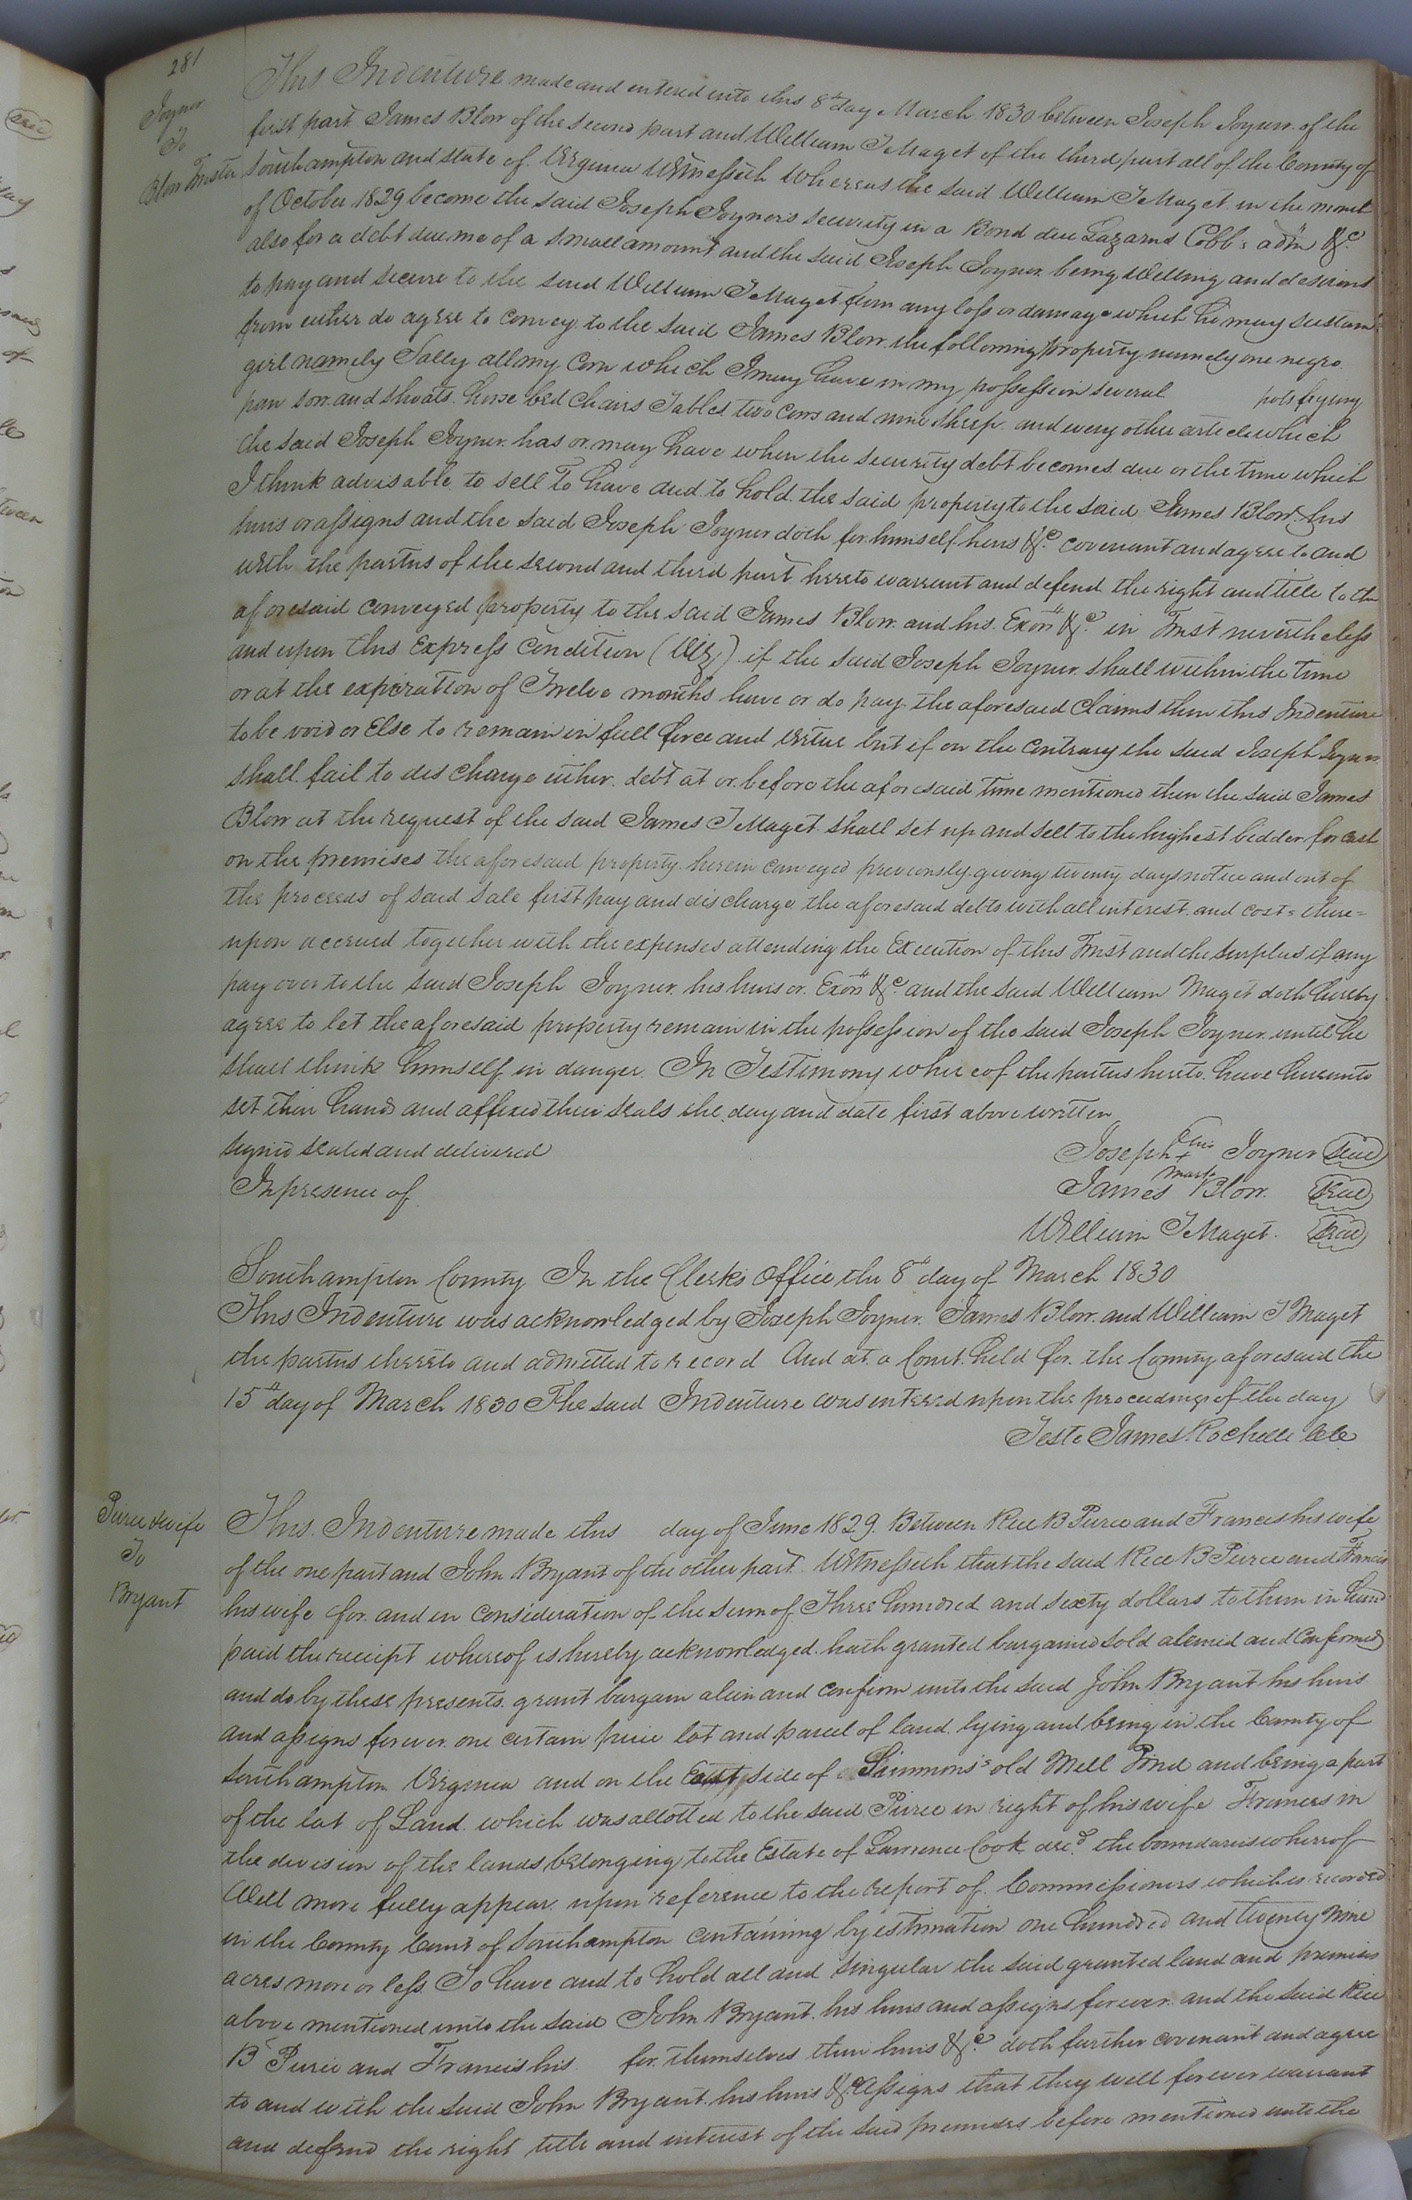 281
Joyner
To
Blow Trustee
This Indenture made and entered into this 8th day March 1830 between Joseph Joyner of the
first part James Blow of the second part and William T Maget of the third part all of the County of
Southampton and state of Virginia Witnesseth Whereas the said William T Maget in the month
of October 1829 become the said Joseph Joyner's security in a Bond due Lazarus Cobb's adm &c
also for a debt due me of a small amount and the said Joseph Joyner being Willing and desirous
to pay and secure to the said William T Maget from any loss or damage which he may sustain
from either do agree to convey to the said James Blow the following property namely one negro
girl namely Sally all my Corn which I may have in my possession several pots frying
pan sow and shoats horse bed chairs Tables two Cows and nine sheep and every other article which
the said Joseph Joyner has or may have when the security debt becomes due or the time which
I think advisable to sell To have and to hold the said property to the said James Blow his
heirs or assigns and the said Joseph Joyner doth for himself heirs &c covenant and agree to and
with the parties of the second and third part hereto warrant and defend the right and title to the
aforesaid conveyed property to the said James Blow and his Exors &c in Trust nevertheless
and upon this Express Condition (Viz) if the said Joseph Joyner shall within the time
or at the expiration of Twelve months have or do pay the aforesaid Claims then this Indenture
to be void or Else to remain in full force and virtue but if on the contrary the said Joseph Joyner
shall fail to discharge either debt at or before the aforesaid time mentioned then the said James
Blow at the request of the said James T Maget shall set up and sell to the highest bidder for cash
on the premises the aforesaid property herein conveyed previously giving twenty days notice and out of
the proceeds of said sale first pay and discharge the aforesaid debts with all interest and cost there=
upon accrued together with the expenses attending the Execution of this Trust and the surplus if any
pay over to the said Joseph Joyner his heirs or Exors &c and the said William Maget doth hereby
agree to let the aforesaid property remain in the possession of the said Joseph Joyner until he
shall think himself in danger In Testimony whereof the parties hereto have hereunto
set their hands and affixed their seals the day and date first above written
signed sealed and delivered
In presence of
Joseph his + mark Joyner Seal
James Blow Seal
William T Maget Seal
Southampton County In the Clerks Office the 8th day of March 1830
This Indenture was acknowledged by Joseph Joyner James Blow and William T Maget
the parties thereto and admitted to record And at a Court held for the County aforesaid the
15th day of March 1830 The said Indenture was entered upon the proceedings of the day
Teste James Rochelle
Pierce & wife
To
Bryant
This Indenture made this day of June 1829 Between Rice B Pierce and Francis his wife
of the one part and John Bryant of the other part Witnesseth that the said Rice B Pierce and Francis
his wife for and in consideration of the sum of Three hundred and sixty dollars to them in hand
paid the receipt whereof is hereby acknowledged hath granted bargained sold aliened and Confirmed
and do by these presents grant bargain alien and confirm unto the said John Bryant his heirs
and assigns forever one certain piece lot and parcel of land lying and being in the County of
Southampton Virginia and on the East side of Simmons's old Mill Pond and being a part
of the lot of Land which was allotted to the said Pierce in right of his wife Frances in
the division of the lands belonging to the Estate of Lawrence Cook decd the boundaries whereof
Will more fully appear upon reference to the report of Commissioners which is recorded
in the County Court of Southampton containing by estimation one hundred and twenty Nine
acres more or less To have and to hold all and singular the said granted land and premises
above mentioned unto the said John Bryant his heirs and assigns forever and the said Rice
B Pierce and Francis his for themselves their heirs &c doth further covenant and agree
to and with the said John Bryant his heirs &c Assigns that they will forever warrant
and defend the right title and interest of the said premises before mentioned unto the